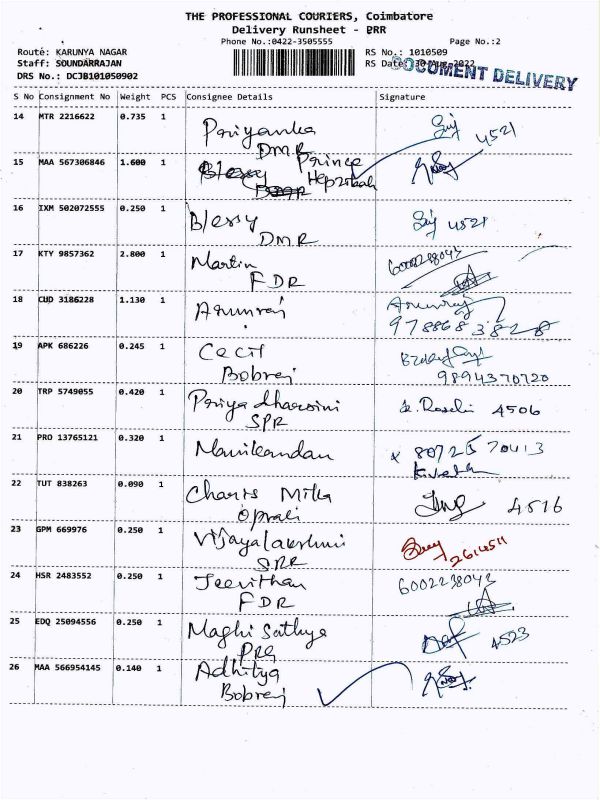 THE PROFESSIONAL COURIERS, Coimbatore
Delivery Runsheet - DRR
Phone No.:0422-3505555 Page No.:2
Route: KARUNYA NAGAR RS No.: 1010509
Staff: SOUNDARRAJAN RS Date: 30-Aug-2022
DRS No.: DCJB101050902 DOCUMENT DELIVERY
S No Consignment No Weight PCS Consignee Details Signature
14 MTR 2216622 0.735 1 Priyanka 4521
DMR
15 MAA 567306846 1.600 1 Blessy Prince
Hepzibah
16 IXM 502072555 0.250 1 Blessy 4521
DMR
17 KTY 9857362 2.800 1 Martin 6002238043
FDR
18 CUD 3186228 1.130 1 Arunraj Arunraj
9788683828
19 APK 686226 0.245 1 Cecil
Bobrej 9894370720
20 TRP 5749055 0.420 1 Priya dharsini 4506
SPR
21 PRO 13765121 0.320 1 Manikandan 8072570413
22 TUT 838263 0.090 1 Charis Mika 4516
23 GPM 669976 0.250 1 Vijayalakshmi
SRR
24 HSR 2483552 0.250 1 Jeevithan 6002238043
FDR
25 EDQ 25094556 0.250 1 Maghi Sathya 4523
PRG
26 MAA 566954145 0.140 1 Adhitya
Bobrej